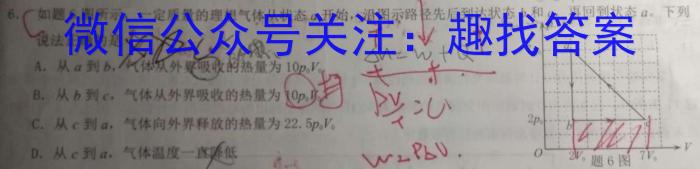 6. 如题6图所示,一定质量的理想气体从状态a开始,沿图示路径先后到达状态b和c,再回到状态a。下列
说法
微信公众号关注:趣找答案
A. 从a到b,气体从外界吸收的热量为10p₀V₀
B. 从b到c,气体从外界吸收的热量为10p₀V₀
C. 从c到a,气体向外界释放的热量为22.5p₀V₀
D. 从c到a,气体温度一直降低
2p₀
b
c
O
2V₀
7V₀
V
题6图